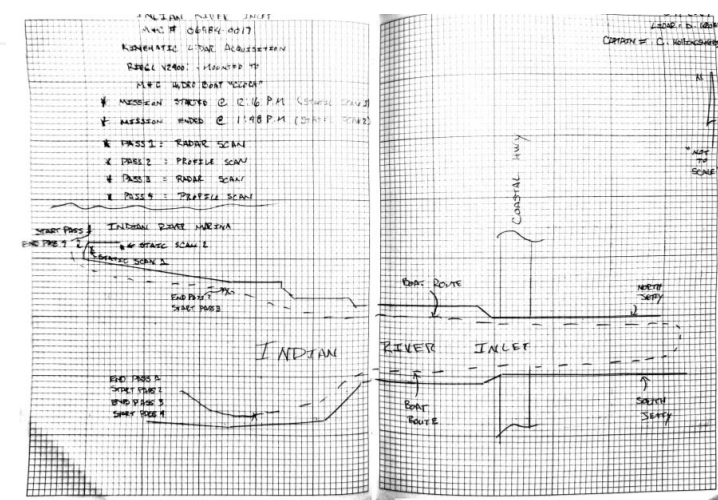 INDIAN RIVER INLET
M&C # 06984.0017
KINEMATIC LIDAR ACQUISITION
MOUNTED TO
M&C HYDRO BOAT
* MISSION STARTED @ 12:16 P.M (STATIC SCAN 1)
* MISSION ENDED @ 1:48 P.M (STATIC SCAN 2)
* PASS 1 : RADAR SCAN
* PASS 2 : PROFILE SCAN
* PASS 3 : RADAR SCAN
* PASS 4 : PROFILE SCAN
START PASS 1
INDIAN RIVER MARINA
END PASS 4
* STATIC SCAN 2
* STATIC SCAN 1
END PASS 2
START PASS 3
INDIAN
END PASS 1
START PASS 2
END PASS 3
START PASS 4
LIDAR: D.
CAPTAIN = C.
N
* NOT
TO
SCALE
COASTAL HWY
BOAT ROUTE
NORTH
JETTY
RIVER INLET
BOAT
ROUTE
SOUTH
JETTY